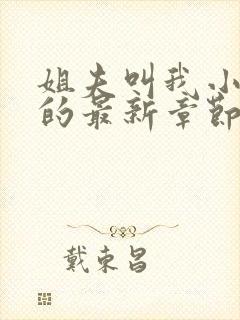 姐夫叫我小
的最新章节
戴东昌